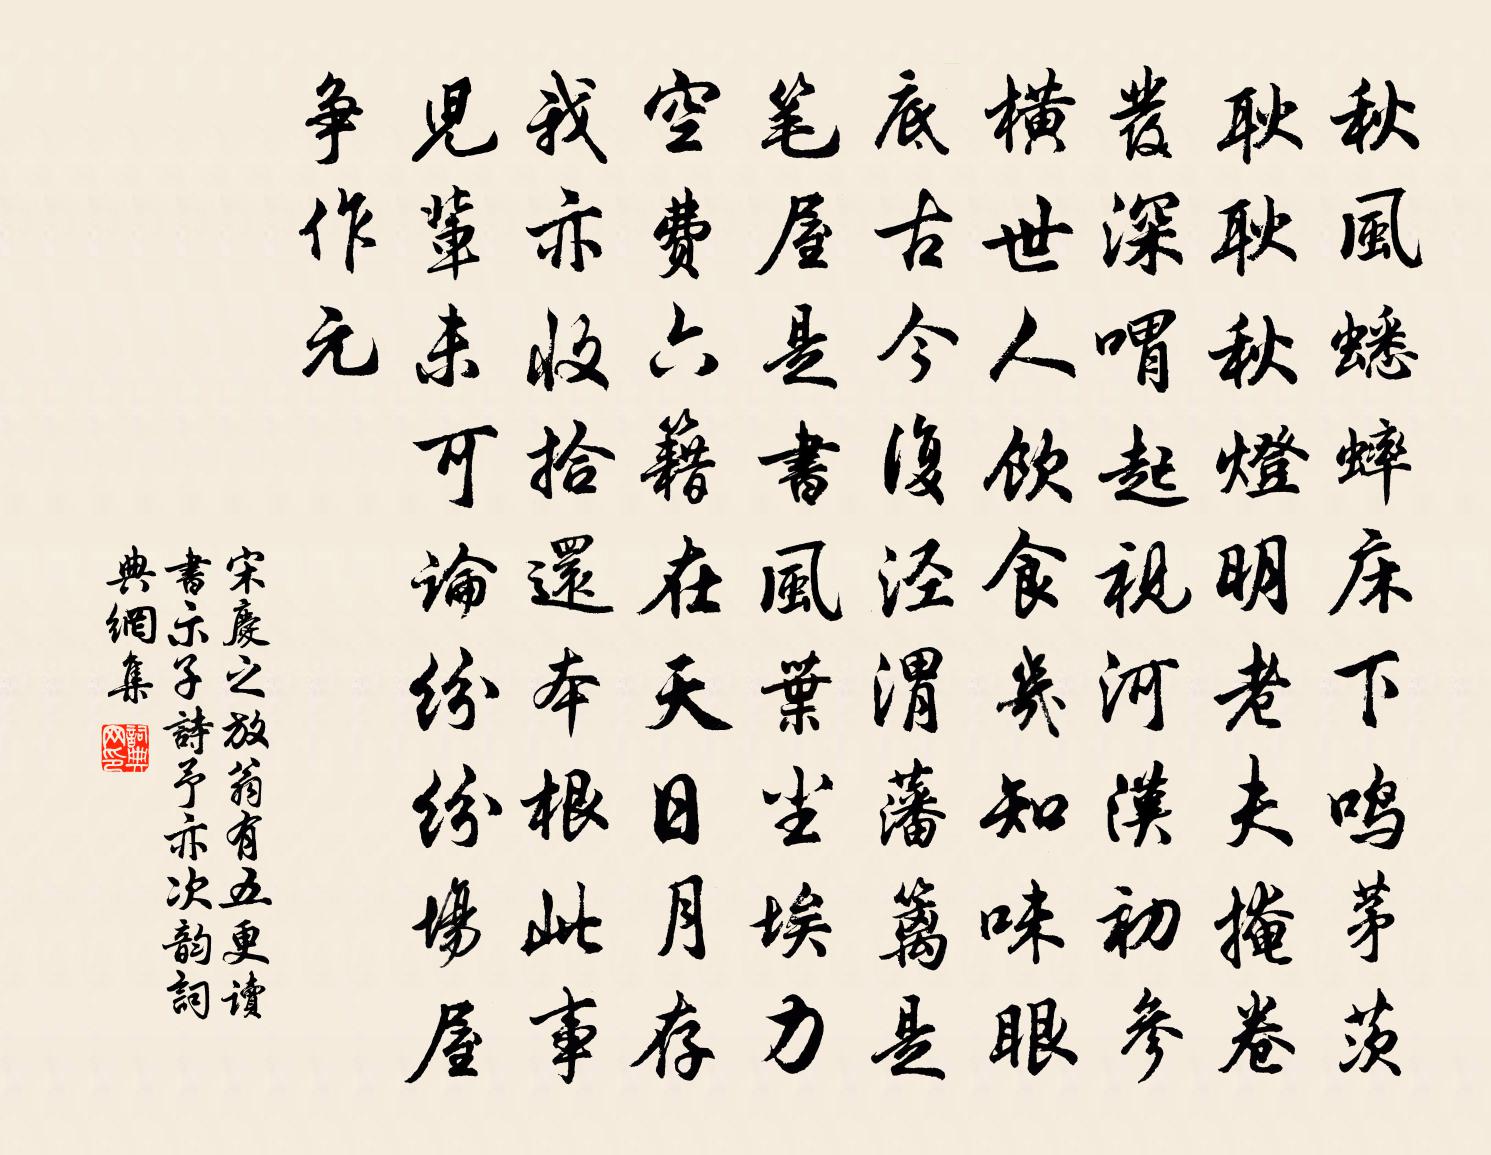 秋風蟋蟀床下鳴茅茨
耿耿秋燈明老夫掩卷
發深喟起視河漢初參
橫世人飲食幾知味眼
底古今復泾渭藩籬是
笔屋是書風葉尘埃力
空費六籍在天日月存
我亦收拾還本根此事
児輩未可論紛紛場屋
争作元
宋慶之放翁有五更讀
書示子詩予亦次韵詞
典網集
詞典网印